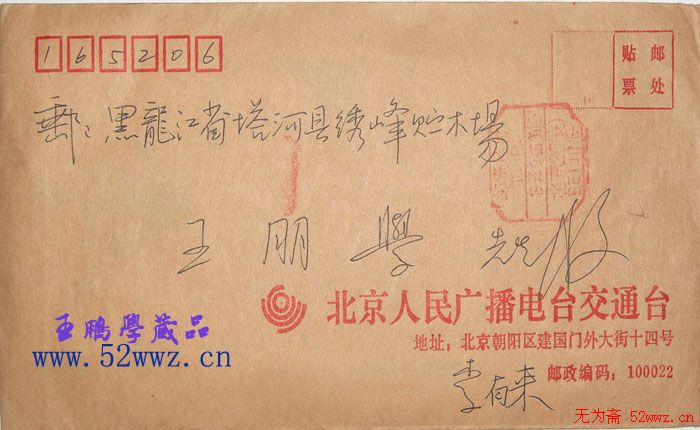 165206
贴邮
票处
郵:黑龍江省塔河县绣峰贮木場
王朋學 先生 收
北京人民广播电台交通台
地址:北京朝阳区建国门外大街十四号
李有来 邮政编码:100022
王鵬學蔵品
www.52wwz.cn
无为斋 52wwz.cn